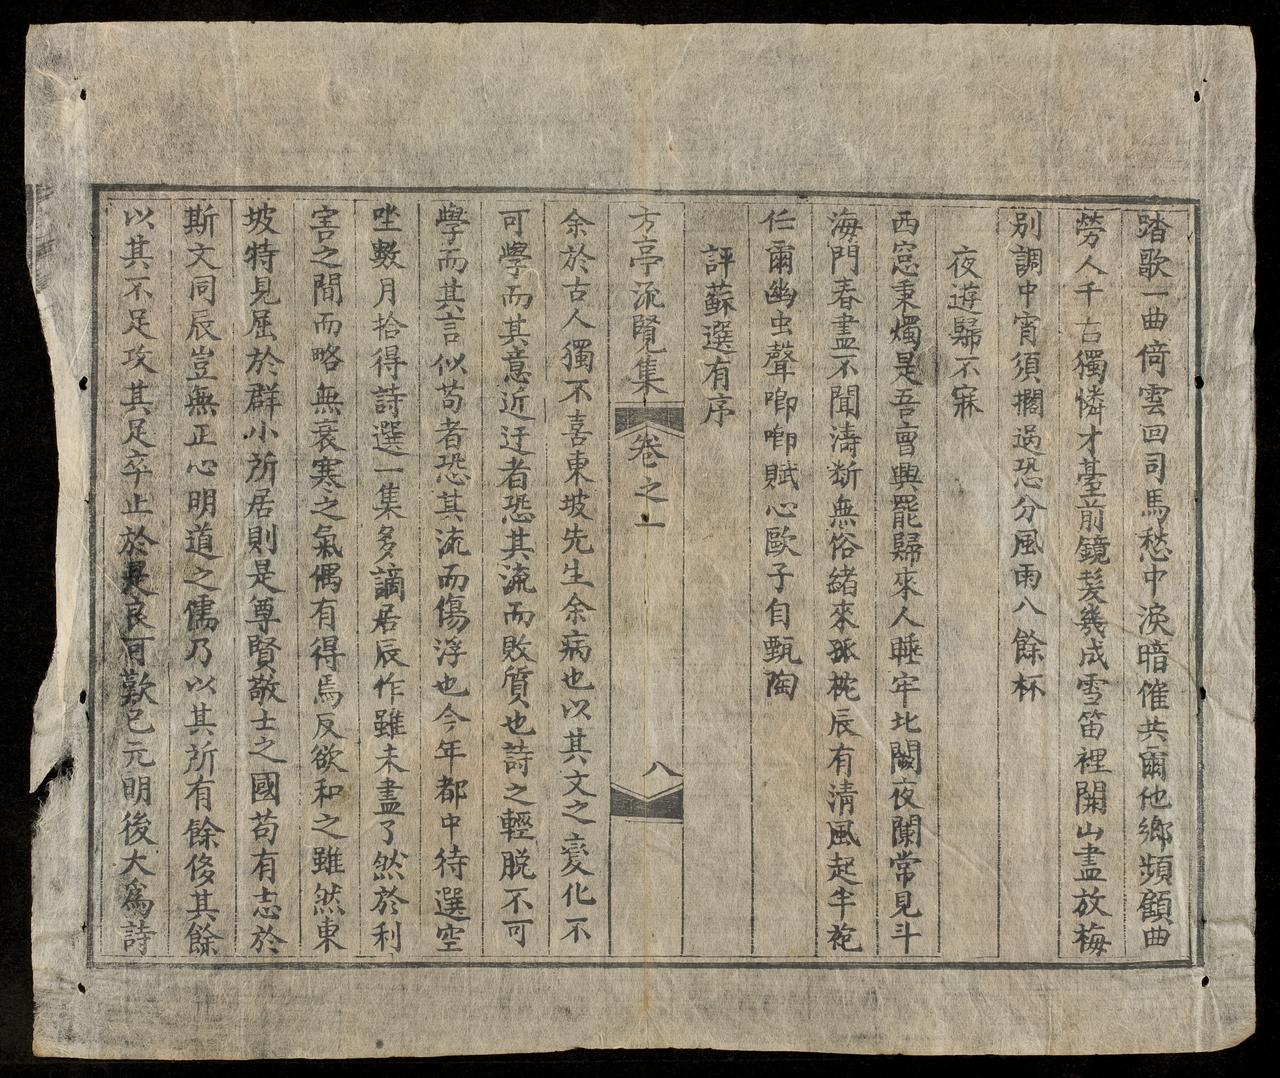 踏歌一曲倚雲回司馬愁中淚暗催共爾他鄉頻顧曲
勞人千古獨憐才臺前鏡髮幾成雪笛裡關山盡放梅
別調中宵須擱過恐分風雨八餘杯
夜遊歸不寐
西窓秉燭是吾曾興罷歸來人睡牢北闕夜闌常見斗
海門春盡不聞濤斷無俗緒來孤枕辰有清風起半袍
任爾幽虫聲唧唧賦心歐子自甄陶
評蘇選有序
方亭流覽集 卷之一 八
余於古人獨不喜東坡先生余病也以其文之變化不
可學而其意近迂者恐其流而敗質也詩之輕脫不可
學而其言似苟者恐其流而傷浮也今年都中待選空
坐數月拾得詩選一集多謫居辰作雖未盡了然於利
害之間而略無衰寒之氣偶有得焉反欲和之雖然東
坡特見屈於群小所居則是尊賢敬士之國苟有志於
斯文同辰豈無正心明道之儒乃以其所有餘俊其餘
以其不足攻其足卒止於是良可歎已元明後大為詩